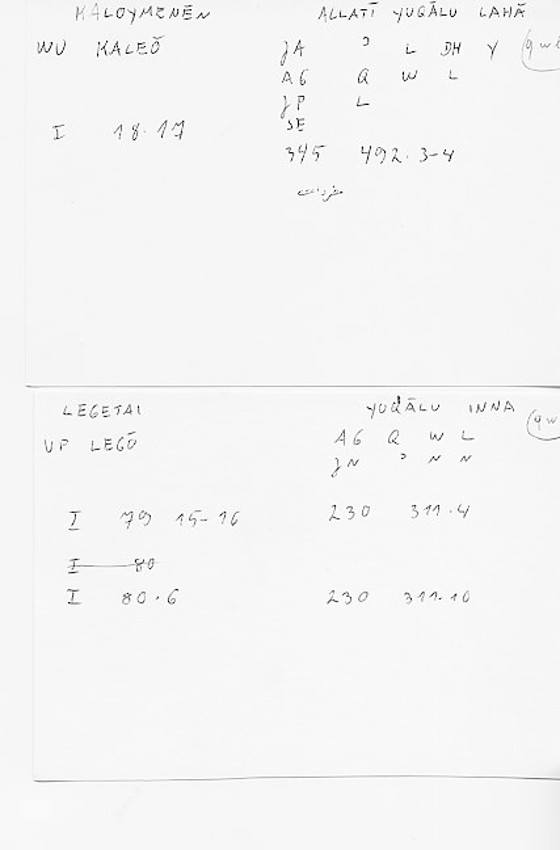 KALOYMENĒN ALLATĪ YUQĀLU LAHĀ
WU KALEŌ JA ʾ L DH Y
AG Q W L
JP L
SE
I 18.17
345 492.3-4
مفردات
LEGETAI YUQĀLU INNA
VP LEGŌ AG Q W L
JN ʾ N N
I 79 15-16 230 311.4
I 80
I 80.6 230 311.10